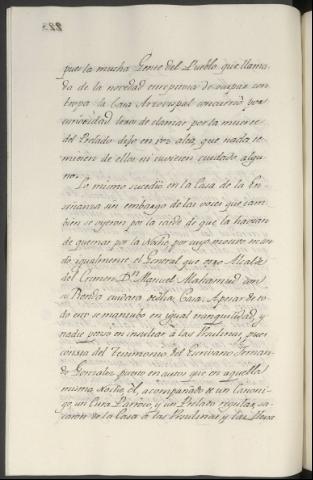 pues la mucha Gente del Pueblo, que llama-
da de la novedad en
tropa la Casa Arzovispal concurrió por
curiosidad lexos de clamar por la muerte
del Prelado dijo en voz alta, que nada te-
miesen de ellos ni tuviesen cuidado algu-
no.
Lo mismo sucedió en la Casa de la En-
señanza sin embargo de las voces que tam-
bien se oyeron por la tarde de que la havian
de quemar por la Noche por cuyo motivo man-
do igualmente el General que otro Alcalde
del Crimen Dn. Manuel con
su Ronda cuidara dicha Casa. Apesar de to-
do eso se mantubo en igual tranquilidad, y
nadie pensó en insultar a las Paulinas, pues
consta del Testimonio del Escrivano Fernan-
do Gonzalez puesto en autos que en aquella
misma Noche él, acompañado de un Canoni-
go, un Cura Parroco, y un Prelado regular, sa-
caron de la Casa a las Paulinas y las